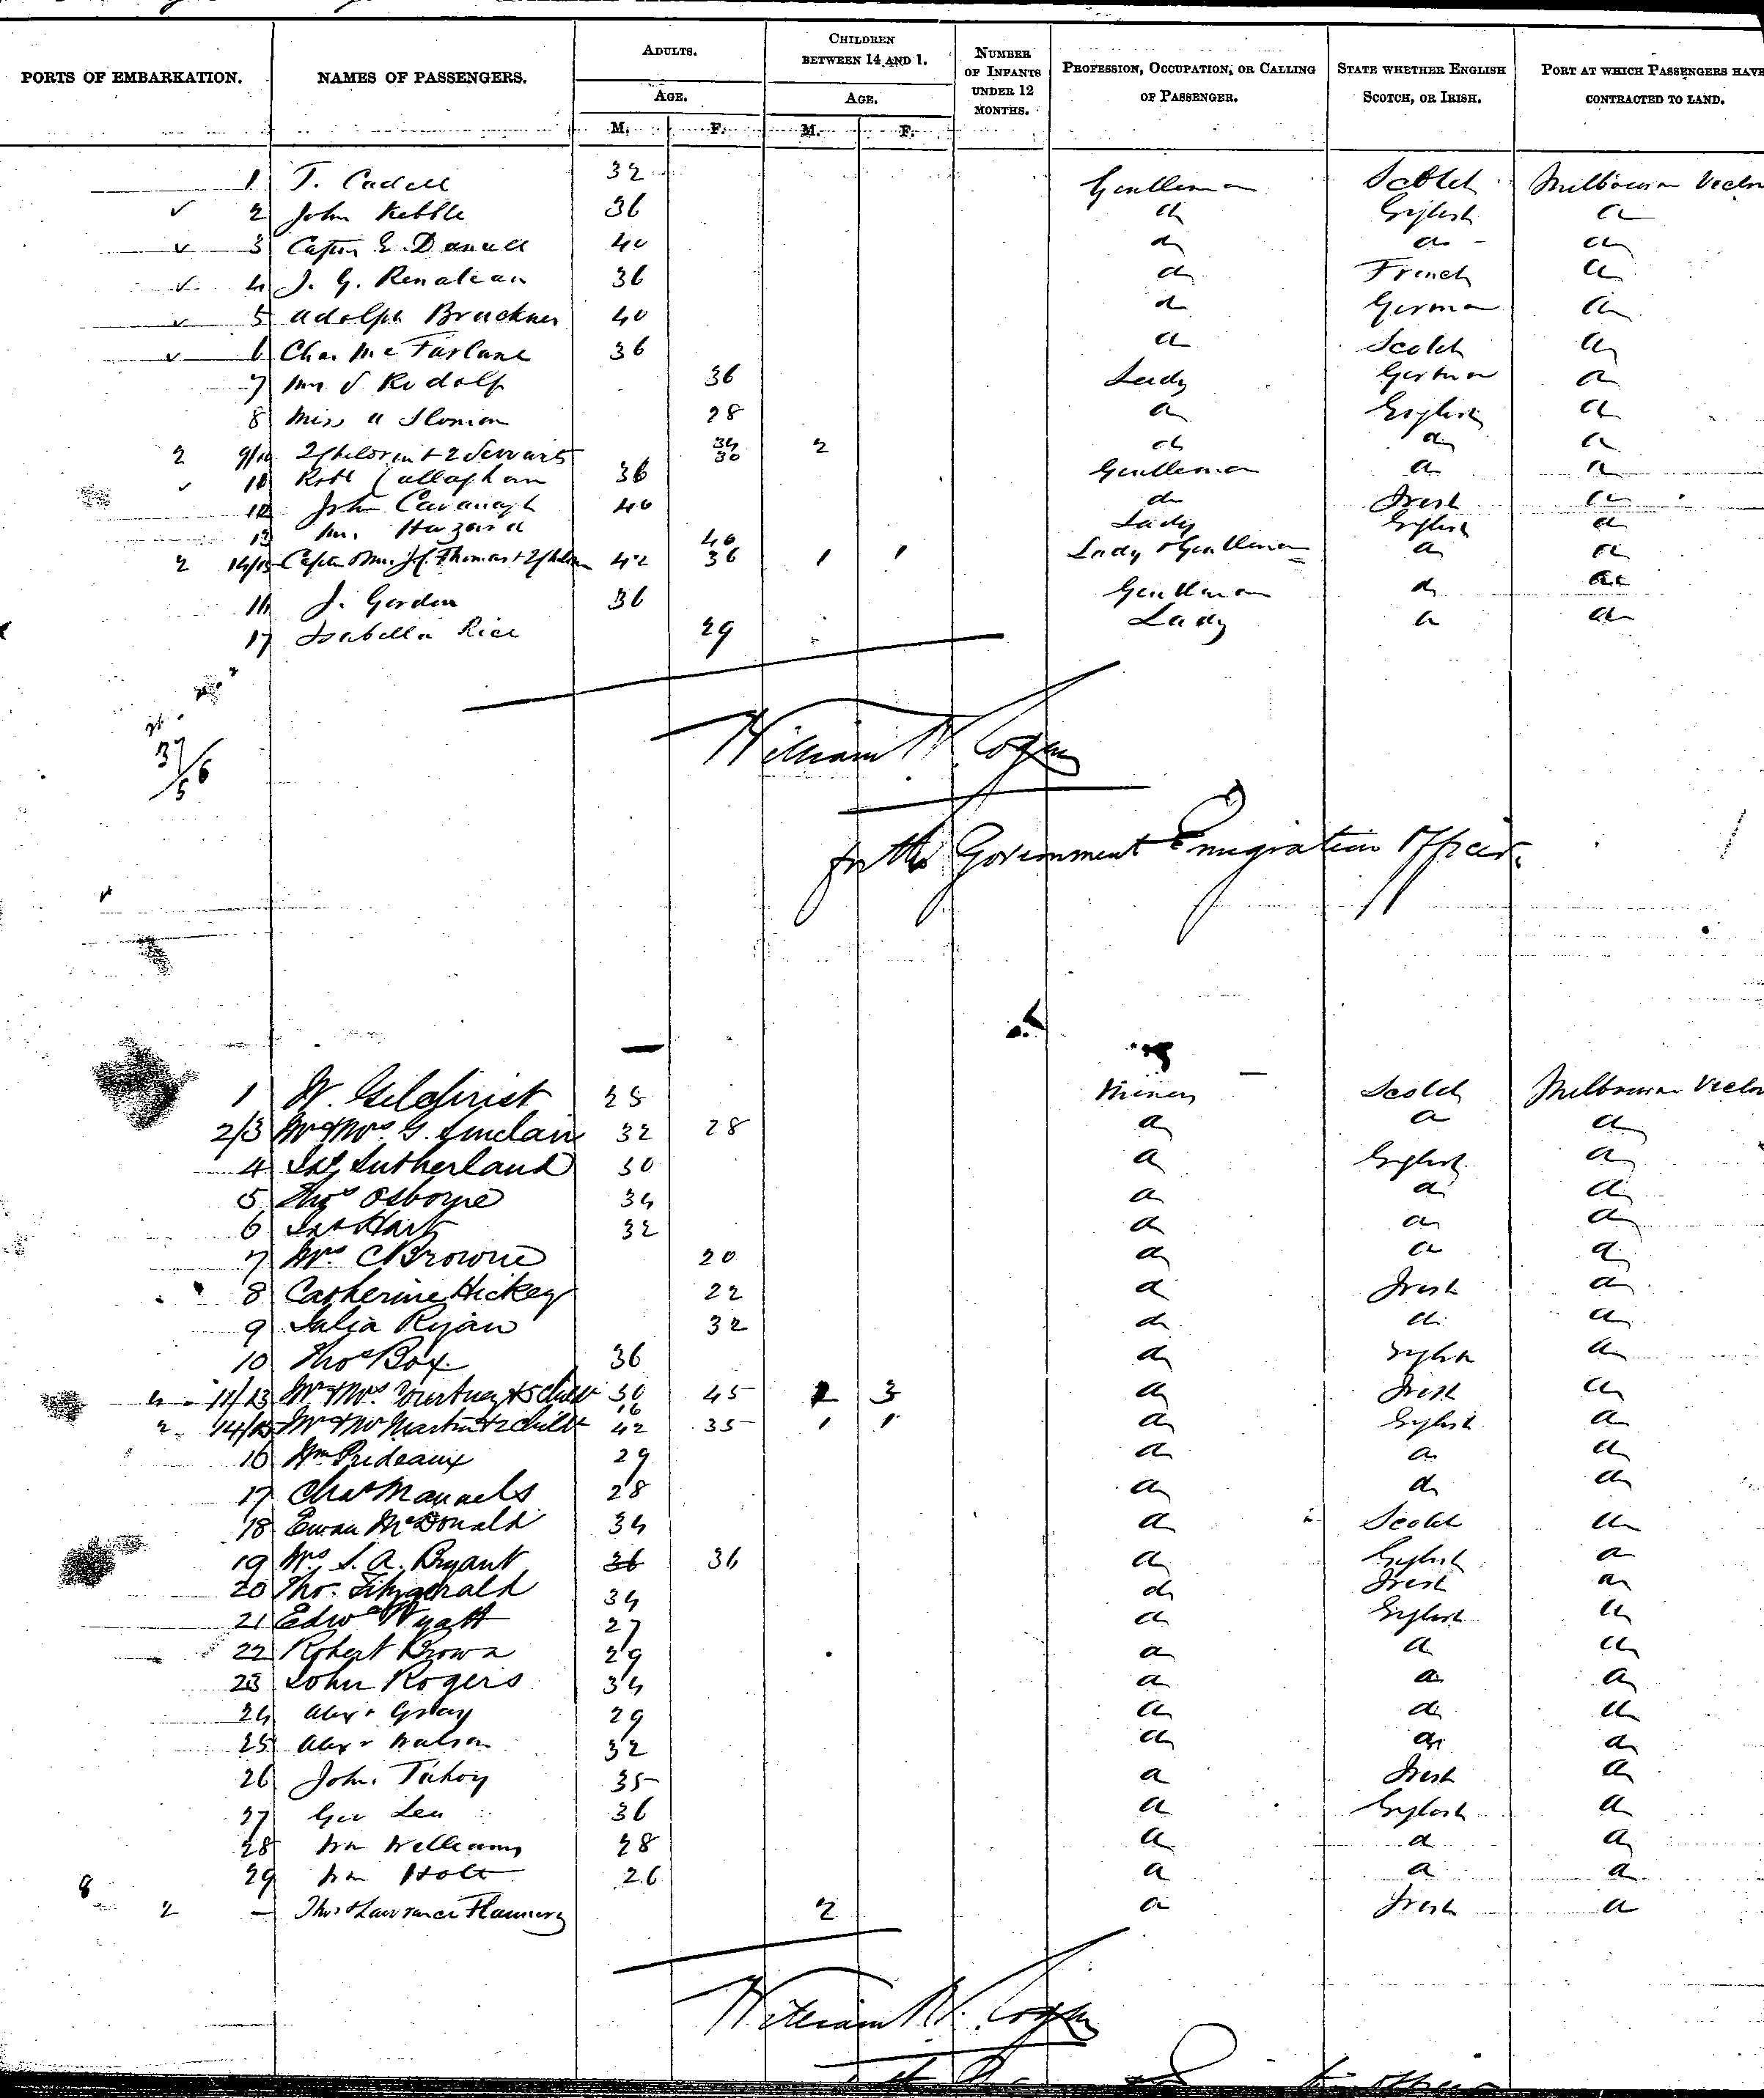 PORTS OF EMBARKATION. NAMES OF PASSENGERS. ADULTS. CHILDREN BETWEEN 14 AND 1. NUMBER OF INFANTS UNDER 12 MONTHS. PROFESSION, OCCUPATION, OR CALLING OF PASSENGER. STATE WHETHER ENGLISH SCOTCH, OR IRISH. PORT AT WHICH PASSENGERS HAVE CONTRACTED TO LAND.
AGE. AGE.
M. F. M. F.
1 T. Cadell 32 Gentleman Scotch Melbourne
2 John Kebble 36 do English do
3 Captn E. 40 do do do
4 J. G. 36 do French do
5 Adolph Bruckner 40 do German do
6 Chas McFarlane 36 do Scotch do
7 Mrs S Rudolf 36 Lady German do
8 Miss A Sloman 28 do English do
2 9/10 2 Children + 2 Servants 30 2 do do do
Robt Callaghan 36 Gentleman do do
12 John Cavanagh 40 do Irish do
13 Mrs Hazard 40 Lady English do
2 14/15 Captn & Mrs J.C. Thomas + 2 Chldn 42 36 1 1 Lady & Gentleman do do
16 J. Gordon 36 Gentleman do do
17 Isabella Rice 29 Lady do do
William N. Cogan
for the Government Emigration Officer.
1 W. Gilchrist 25 Miner Scotch Melbourne
2/3 Mr & Mrs G. Sinclair 32 28 do do do
4 Jas Sutherland 30 do English do
5 Thos Osborne 34 do do do
6 Jas Hart 32 do do do
7 Mrs C Browne 20 do do do
8 Catherine Hickey 22 do Irish do
9 Julia Ryan 32 do do do
10 Thos Box 36 do English do
4 11/13 Mr & Mrs Courtney & 5 Childn 50 16 45 3 do Irish do
2 14/15 Mr & Mrs Martin + 2 Childn 42 35 1 1 do English do
16 Wm Prideaux 29 do do do
17 Chas Manuels 28 do do do
18 Ewan McDonald 34 do Scotch do
19 Mrs S. A. Bryant 36 36 do English do
20 Tho. Fitzgerald 34 do Irish do
21 Edwd Wyatt 27 do English do
22 Robert Brown 29 do do do
23 John Rogers 34 do do do
24 Alexr Gray 29 do do do
25 Alexr Watson 32 do do do
26 John 35 do Irish do
27 Geo Lea 36 do English do
28 Wm Williams 28 do do do
29 Wm Holt 26 do do do
8
2 — Thos & Lawrence Flannery 2 do Irish do
William N. Cogan